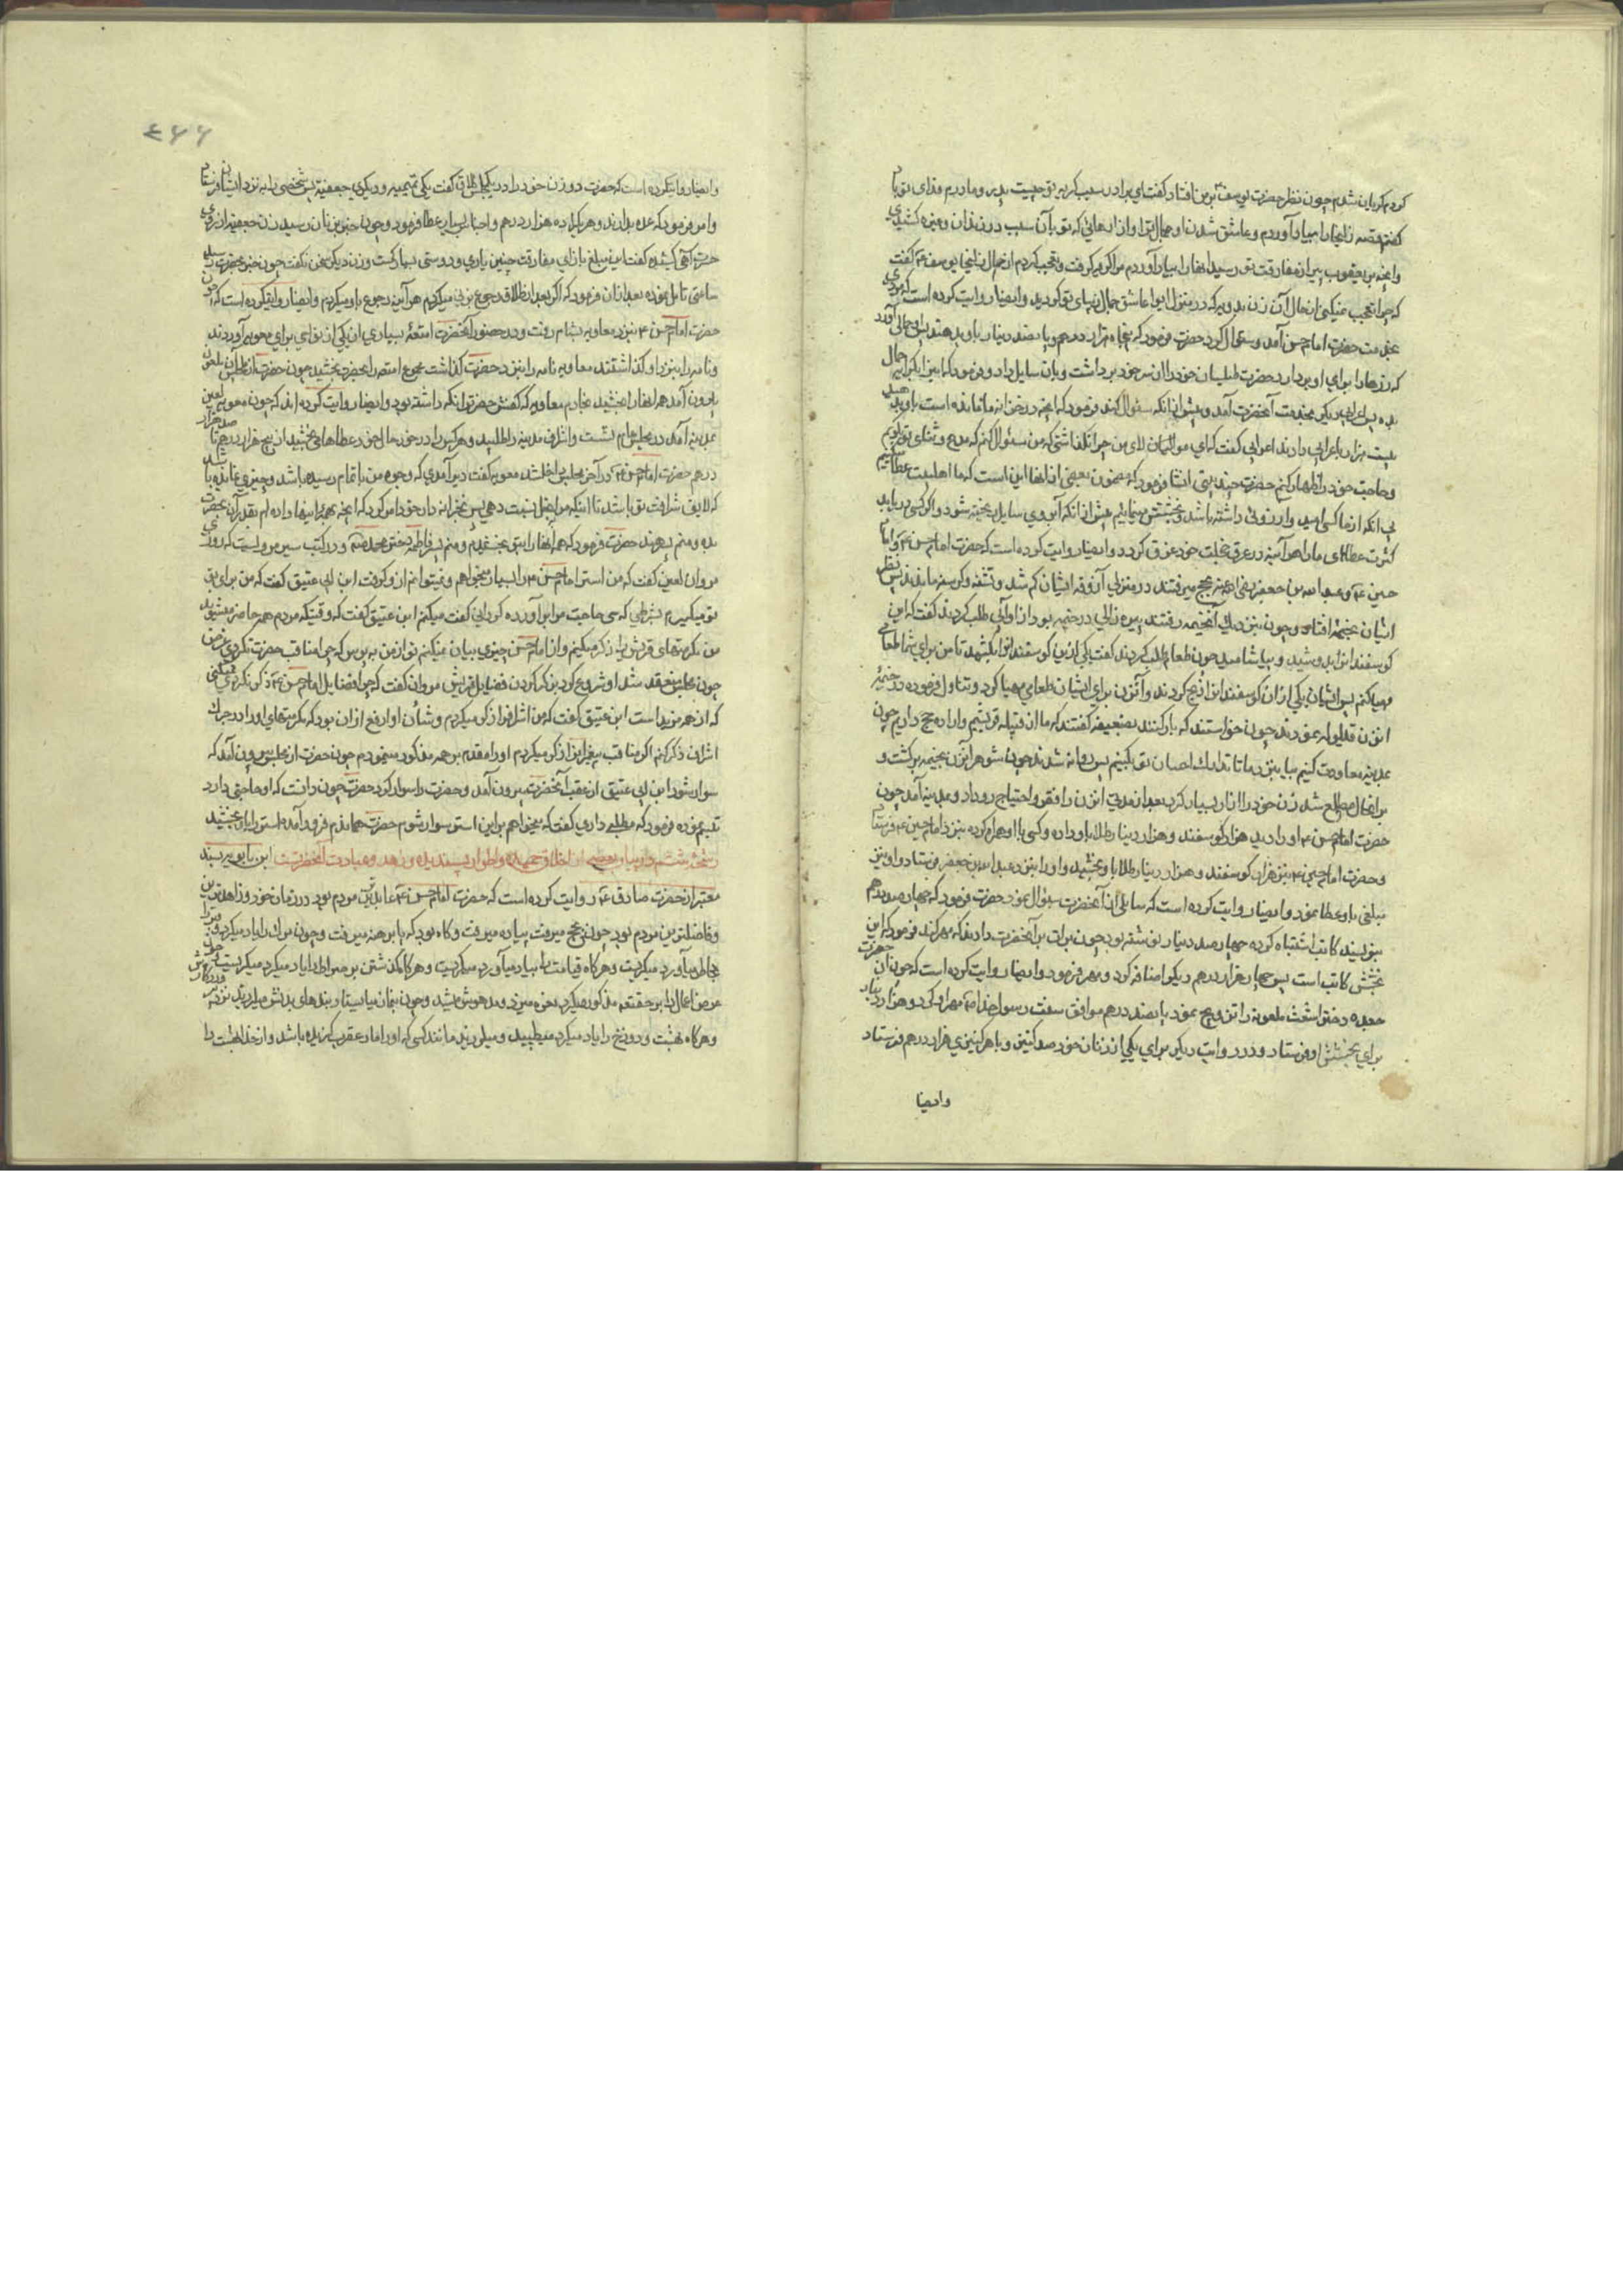 کردم کریان شدم چون نظر حضرت یوسف بر من افتاد کفت ای برادر سبب کریه تو چیست پدر و مادرم فدای تو باد
کفتم قصه زلیخا را بیاد آوردم و عاشق شدن او جمال ترا و آزارهائی که تو بآن سبب در زندان و غیره کشیدی
و آنچه بر یعقوب پیر از مفارقت تو رسید اینها را بیاد آوردم مرا کریه کرفت و تعجب کردم از حال زلیخا یوسف کفت
که چرا تعجب نمیکنی از حال آن زن بدویه که در منزل ابوا عاشق جمال تو کردید و ایضا روایت کرده است که مردی
بخدمت حضرت امام حسن آمد و سؤال کرد حضرت فرمود که پنجاه هزار درهم و پانصد دینار باو بدهند پس حمالی آورد
که زرها را برای او بردارد حضرت طیلسان خود را از سر خود برداشت و بآن سایل داد و فرمود که اینرا بکرایه حمال
بده پس اعرابی دیکر بخدمت آنحضرت آمد و پیش از آنکه سؤال کند فرمود که آنچه در خزانه ما مانده است باو بدهید
بیست هزار باعرابی دادند اعرابی کفت که ای مولای من چرا نکذاشتی که من سؤال کنم که مدح و ثنای تو کویم
و حاجت خود را اظهار کنم حضرت چند بیتی انشا فرمود که مضمون بعضی از آنها این است که ما اهلبیت عطا میکنیم
بی آنکه از ما کسی امید و آرزوئی داشته باشد و بخشش مینمائیم پیش از آنکه آبروی سایل ریخته شود و اکر کسی دریابد
کثرت عطای ما را هرآینه در عرق خجلت خود غرق کردد و ایضا روایت کرده است که حضرت امام حسن و امام
حسین و عبدالله بن جعفر بحج میرفتند در منزلی آزوقه ایشان کم شد و تشنه و کرسنه ماندند پس نظر
ایشان بخیمه افتاد و چون بنزدیک آنخیمه رفتند پیره زالی در خیمه بود از او آبی طلب کردند کفت که این
کوسفند را بدوشید و بیاشامید چون طعام طلب کردند کفت یکی ازین کوسفند را بکشید تا من برای شما طعام
مهیا کنم پس ایشان یکی از آن کوسفند را ذبح کردند و آنزن برای ایشان طعامی مهیا کرد و تناول فرموده در خیمهٔ
آنزن قیلوله نمودند چون خواستند که بار کنند بضعیفه کفتند که ما از قبیله قریشیم و اراده حج داریم چون
بمدینه معاودت کنیم بیا بنزد ما تا تدارک احسان تو بکنیم پس روانه شدند چون شوهر آنزن بخیمه برکشت و
بر آنحال مطلع شد زن خود را آزار بسیار کرد بعد از مدتی آنزن را فقر و احتیاج رو داد و بمدینه آمد چون
حضرت امام حسن او را دید هزار کوسفند و هزار دینار طلا باو داده و کسی با او همراه کرده بنزد امام حسین فرستاد
و حضرت امام حسین نیز هزار کوسفند و هزار دینار طلا باو بخشید و او را بنزد عبدالله بن جعفر فرستاد و او نیز
مبلغی باو عطا نمود و ایضا روایت کرده است که سایلی از آنحضرت سؤال نمود حضرت فرمود که چهارصد درهم
بنویسید کاتب اشتباه کرده چهارصد دینار نوشته بود چون برات بآنحضرت دادند که مهر کند فرمود که این
بخشش کاتب است پس چهار هزار درهم دیکر اضافه کرد و مهر فرمود و ایضا روایت کرده است که چون آن حضرت
جعده دختر اشعث ملعونه را تزویج نمود پانصد درهم موافق سنت رسول خدا مهر او کرد و هزار دینار
برای بخشش او فرستاد و در روایت دیکر برای یکی از زنان خود صد کنیز و با هر کنیزی هزار درهم فرستاد
وایضا
۴۶۶
و ایضا روایتکرده است که حضرت دو زن خود را در یکمجلس طلاق کفت یکی تمیمیه و دیکری جعفیه پس شخصی را بنزد ایشان فرستاد
و امر فرمود که عده بدارند و هریکرا ده هزار درهم و اجناس بسیار عطا فرمود و چون خبر بزنان رسید زن جعفیه از روی
حسرت آهی کشیده کفت این مبلغ بازای مفارقت چنین یاری و دوستی بسیار کمست و زن دیکر سخن نکفت چون خبر بحضرت رسید
ساعتی تامل نموده بعد از آن فرمود که اکر بعد از طلاق رجوع بزنی میکردم هرآینه رجوع باو میکردم و ایضا روایتکرده است که چون
حضرت امام حسن بنزد معاویه بشام رفت و در حضور آنحضرت امتعهٔ بسیاری از یکی از نواحی برای معویه آوردند
و نامه را بنزد او کذاشتند معاویه نامه را بنزد حضرت کذاشت مجموع امتعه را بحضرت بخشید چون حضرت از مجلس آن ملعون
بیرون آمد همه آنها را بخشید بخادم معاویه که کفش حضرترا نکه داشته بود و ایضا روایت کرده اند که چون معویه لعین
بمدینه آمد در مجلس عام نشست و اشراف مدینه را طلبید و هر کس را در خور حال خود عطاها می بخشید از پنج هزار درهم تا صد هزار
درهم حضرت امام حسن در آخر مجلس داخل شد معویه کفت دیر آمدی که وجوه من باتمام رسیده باشد و چیزی نمانده باشد
که لایق شرافت تو باشد تا اینکه مرا ببخل نسبت دهی پس بخزانه دار خود امر کرد که آنچه بهمه اینها داده ام بقدر آن بحضرت
بده و منم پسر هند حضرت فرمود که همه آنها را بتو بخشیدم و منم پسر فاطمه دختر محمد و در کتب سیر مرویست که روزی
مروان لعین کفت که من استر امام حسن را بسیار میخواهم و نمیتوانم از او کرفت ابن ابی عتیق کفت که من برای تو
میکیرم بشرطی که سی حاجت مرا برآورده کردانی کفت میکنم ابن عتیق کفت که وقتیکه مردم همه حاضر میشوند
من مکرمتهای قریش را ذکر میکنم و از امام حسن چیزی بیان نمیکنم تو از من بپرس که چرا مناقب حضرت نکردی پس
چون مجلس منعقد شد او شروع کرد بذکر کردن فضایل قریش مروان کفت که چرا فضایل امام حسن ذکر نکردی و حال
که از همه زیاده است ابن عتیق کفت که من اشراف را ذکر میکردم و شأن او ارفع از آن بود که مکرمتهای او را در جرک
اشراف ذکر کنم اکر مناقب پیغمبران را ذکر میکردم او را مقدم بر همه مذکور مینمودم چون حضرت از مجلس بیرون آمد که
سوار شود ابن ابی عتیق از عقب آنحضرت بیرون آمد و حضرت را سوار کرد حضرت چون دانست که او حاجتی دارد
تبسم نموده فرمود که مطلبی داری کفت که میخواهم بر این استر سوار شوم حضرت هماندم فرود آمد و استر را باو بخشید
رشحهٔ هشتم در بیان بعضی از اخلاق حمیده و اطوار پسندیده و زهد و عبادت آنحضرتست ابن بابویه بسند
معتبر از حضرت صادق روایت کرده است که حضرت امام حسن عابدترین مردم بود در زمان خود و زاهدترین
و فاضلترین مردم بود چون بحج میرفت پیاده میرفت و کاه بود که پا برهنه میرفت و چون مرک را یاد میکرد و قبر را
بخاطر میآورد میکریست و هرکاه قیامت را بیاد میآورد میکریست و هرکاه کذشتن بر صراط را یاد میکرد میکریست و چون
عرض اعمال را بر حقتعالی مذکور میکرد نعره میزد و مدهوش میشد و چون بنماز میایستاد بندهای بدنش میلرزید نزد پروردکارش
و هرکاه بهشت و دوزخ را یاد میکرد میطپید و میلرزید مانند کسی که او را مار و عقرب کزیده باشد و از خدا بهشت را